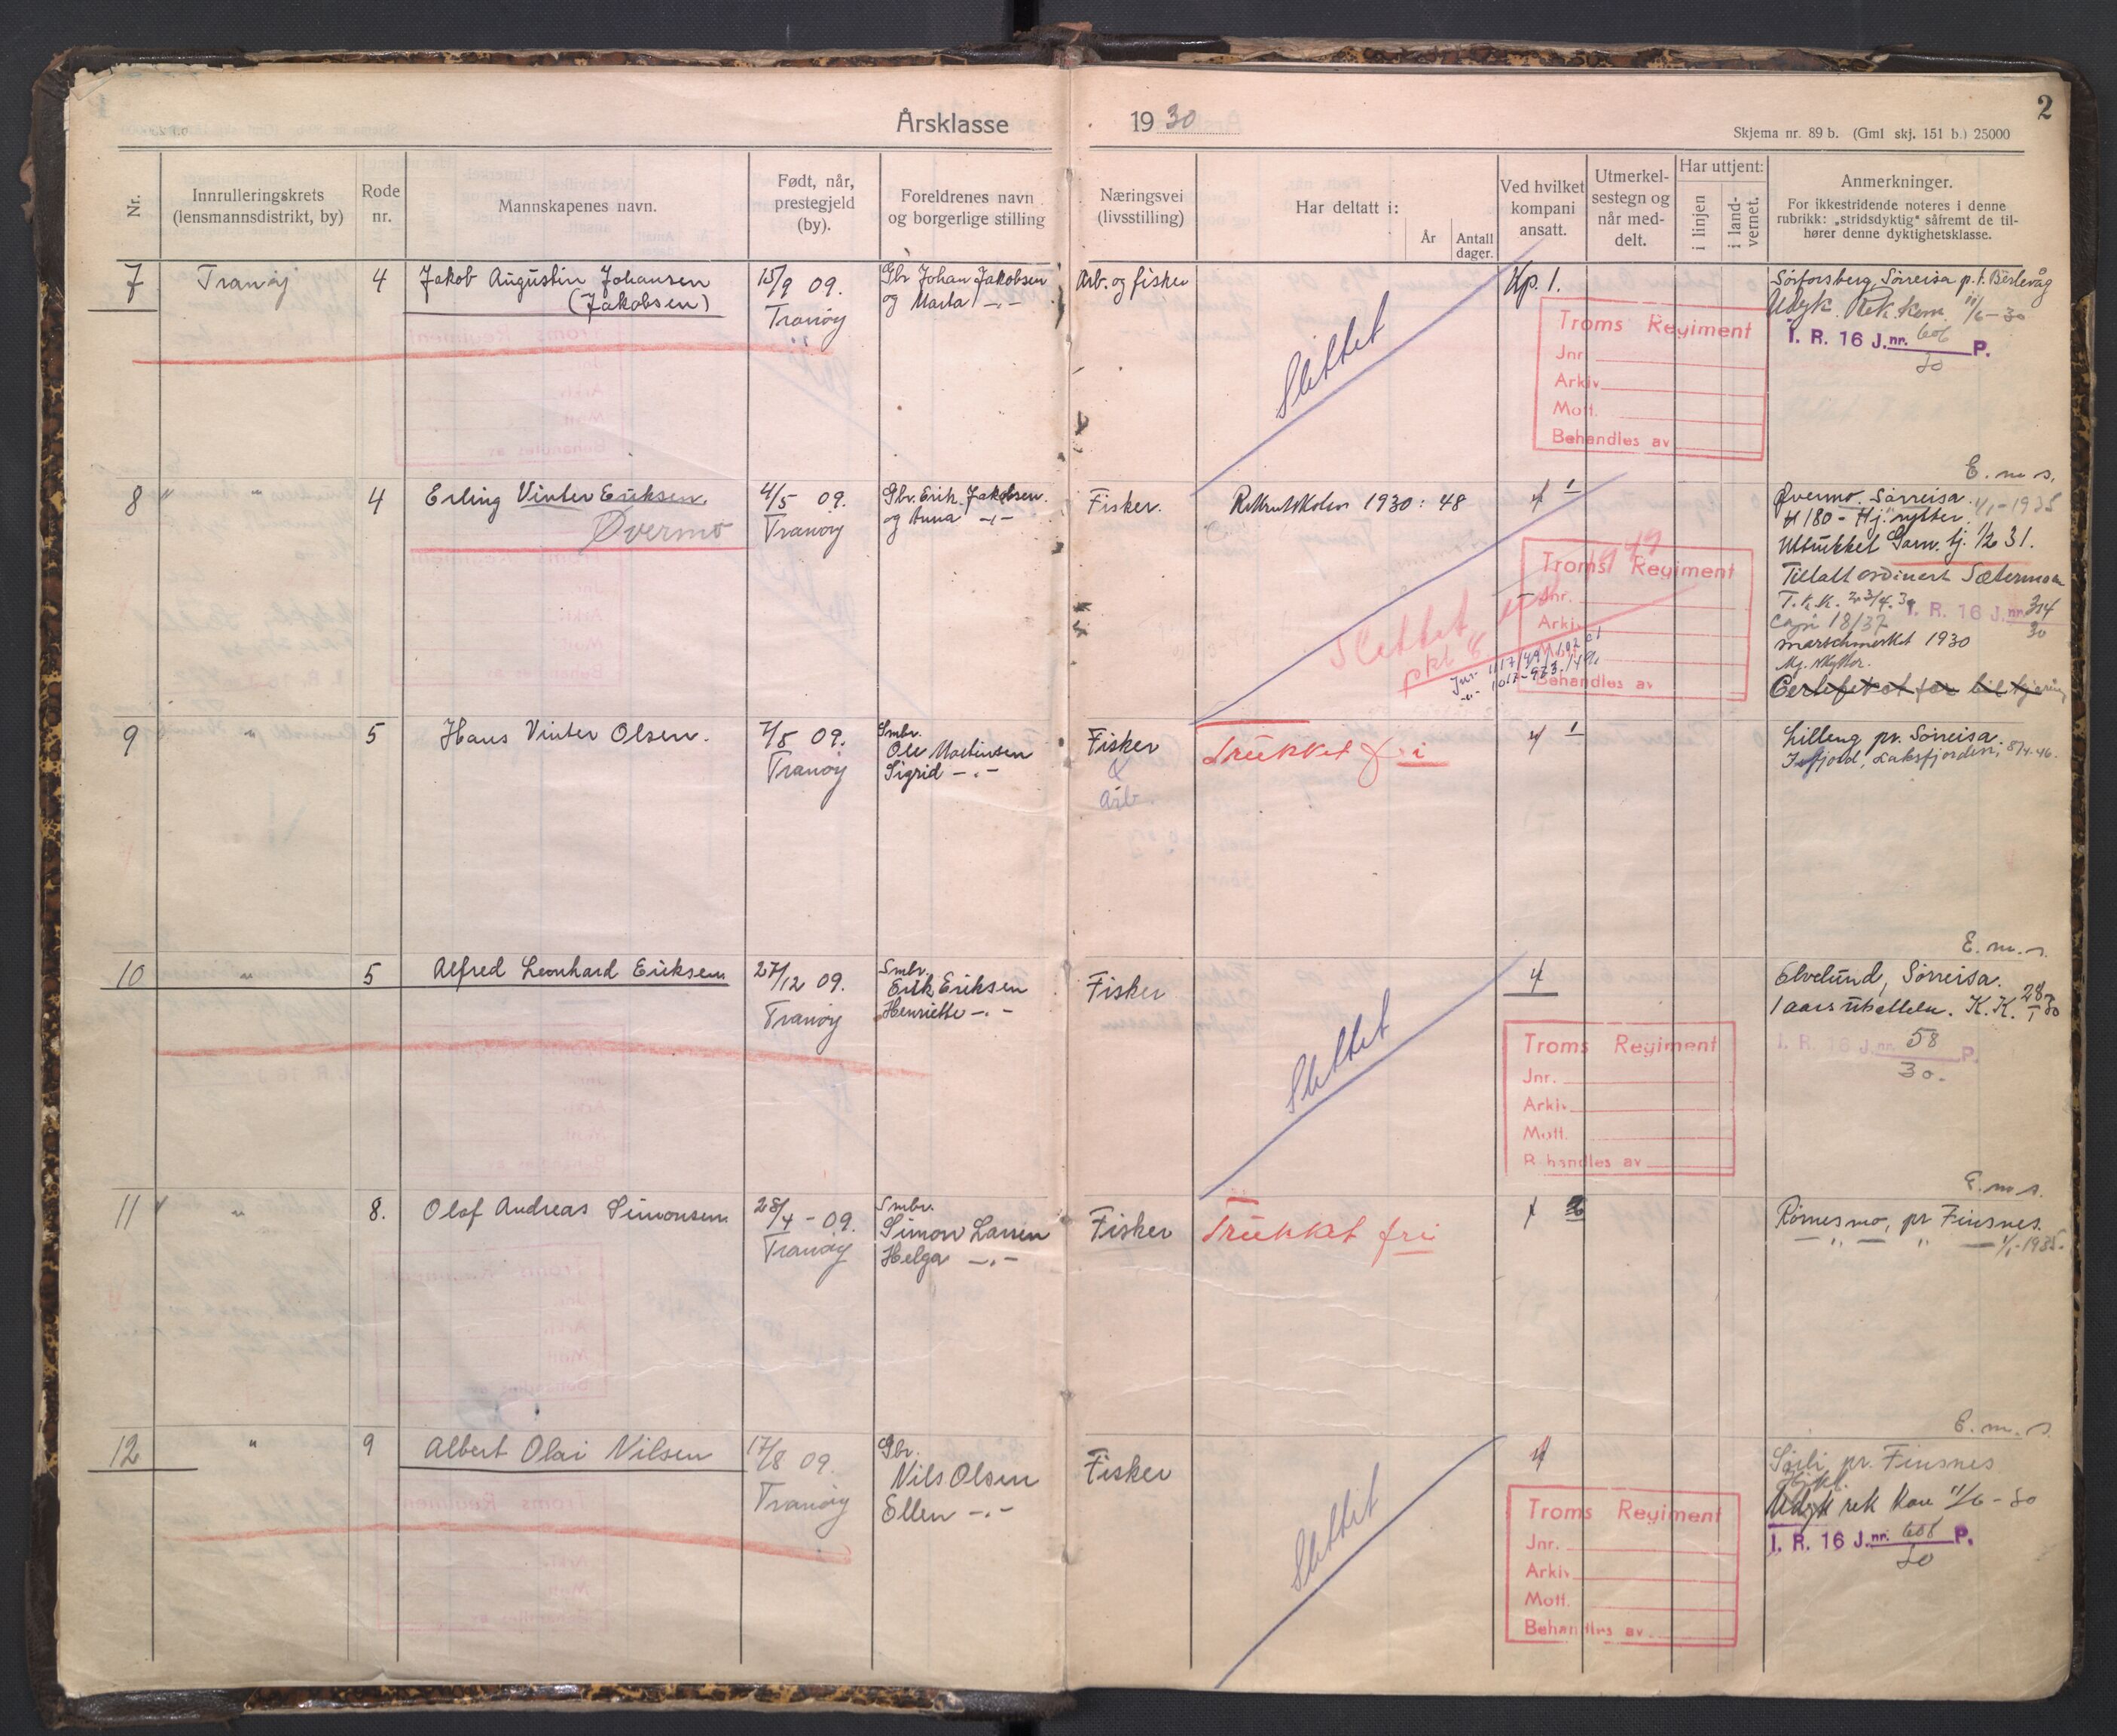 Årsklasse 1930
2
Skjema nr. 89 b. (Gml skj. 151 b.) 25000
Nr.
Innrulleringskrets (lensmannsdistrikt, by)
Rode nr.
Mannskapenes navn.
Født, når, prestegjeld (by).
Foreldrenes navn og borgerlige stilling
Næringsvei (livsstilling)
Har deltatt i:
År
Antall dager.
Ved hvilket kompani ansatt.
Utmerkelsestegn og når meddelt.
Har uttjent:
i linjen
i landvernet.
Anmerkninger.
For ikkestridende noteres i denne rubrikk: „stridsdyktig" såfremt de tilhører denne dyktighetsklasse.
7 Tranøy 4 Jakob Augustin Johansen
(Jakobsen)
15/9 09.
Tranøy
Gbr Johan Jakobsen
og Marta -"-
Arb. og fisker
Slettet
Kp. 1.
Troms Regiment
Jnr.
Arkiv
Mott.
Behandles av
Sørforsberg, Sørreisa p.t. Berlevåg
Udyk. Rek. Kom. 11/6-30
I. R. 16 J.nr. 606 P.
30
8 " " 4 Erling Vinter Eriksen.
Øvermo
4/5 09.
Tranøy
Gbr. Erik Jakobsen.
og Anna -"-
Fisker.
Rekrutskolen 1930: 48
4 1
Slettet
1949
Troms Regiment
Jnr.
Arkiv
Behandles av
E. m. s.
Øvermo. Sørreisa. 1/1-1935
H 180 - Hj. rytter.
Utrukket Garn. tj. 1/2 31.
Tillatt ordinert Sætermoen
I. R. 16 J.nr. 314
30
18/37
marschmerket 1930
Certefikat for bilkjøring
9 " 5 Hans Vinter Olsen.
7/5 09.
Tranøy
Smbr.
Ole Martinsen
Sigrid -"-
Fisker
&
Arb.
Trukket fri
4 1
Lilleng pr. Sørreisa.
Ifjord, Laksfjorden, 8/4-46.
10 " 5 Alfred Leonhard Eriksen
27/12 09.
Tranøy
Smbr.
Erik Eriksen
Henriette -"-
Fisker
Slettet
4
Troms Regiment
Jnr.
Arkiv
Mott.
Behandles av
E. m. s.
Elvelund, Sørreisa.
1 aars utsettelse. K. K. 28/1 30
I. R. 16 J.nr. 58 P.
30.
11 " 8. Olaf Andreas Simonsen
28/4 - 09.
Tranøy
Smbr.
Simon Larsen
Helga -"-
Fisker
Trukket fri
E. m. s.
Rørnesmo, pr Finsnes.
-"- " - 1/1-1935.
12 " 9 Albert Olai Nilsen
17/8 09.
Tranøy
Gbr.
Nils Olsen
Ellen -"-
Fisker
Slettet
4
Troms Regiment
Jnr.
Arkiv
Mott.
Behandles av
E. m. s.
Sørli, pr. Finsnes
Udyk rek kom 11/6-30
I. R. 16 J.nr. 606 P.
30